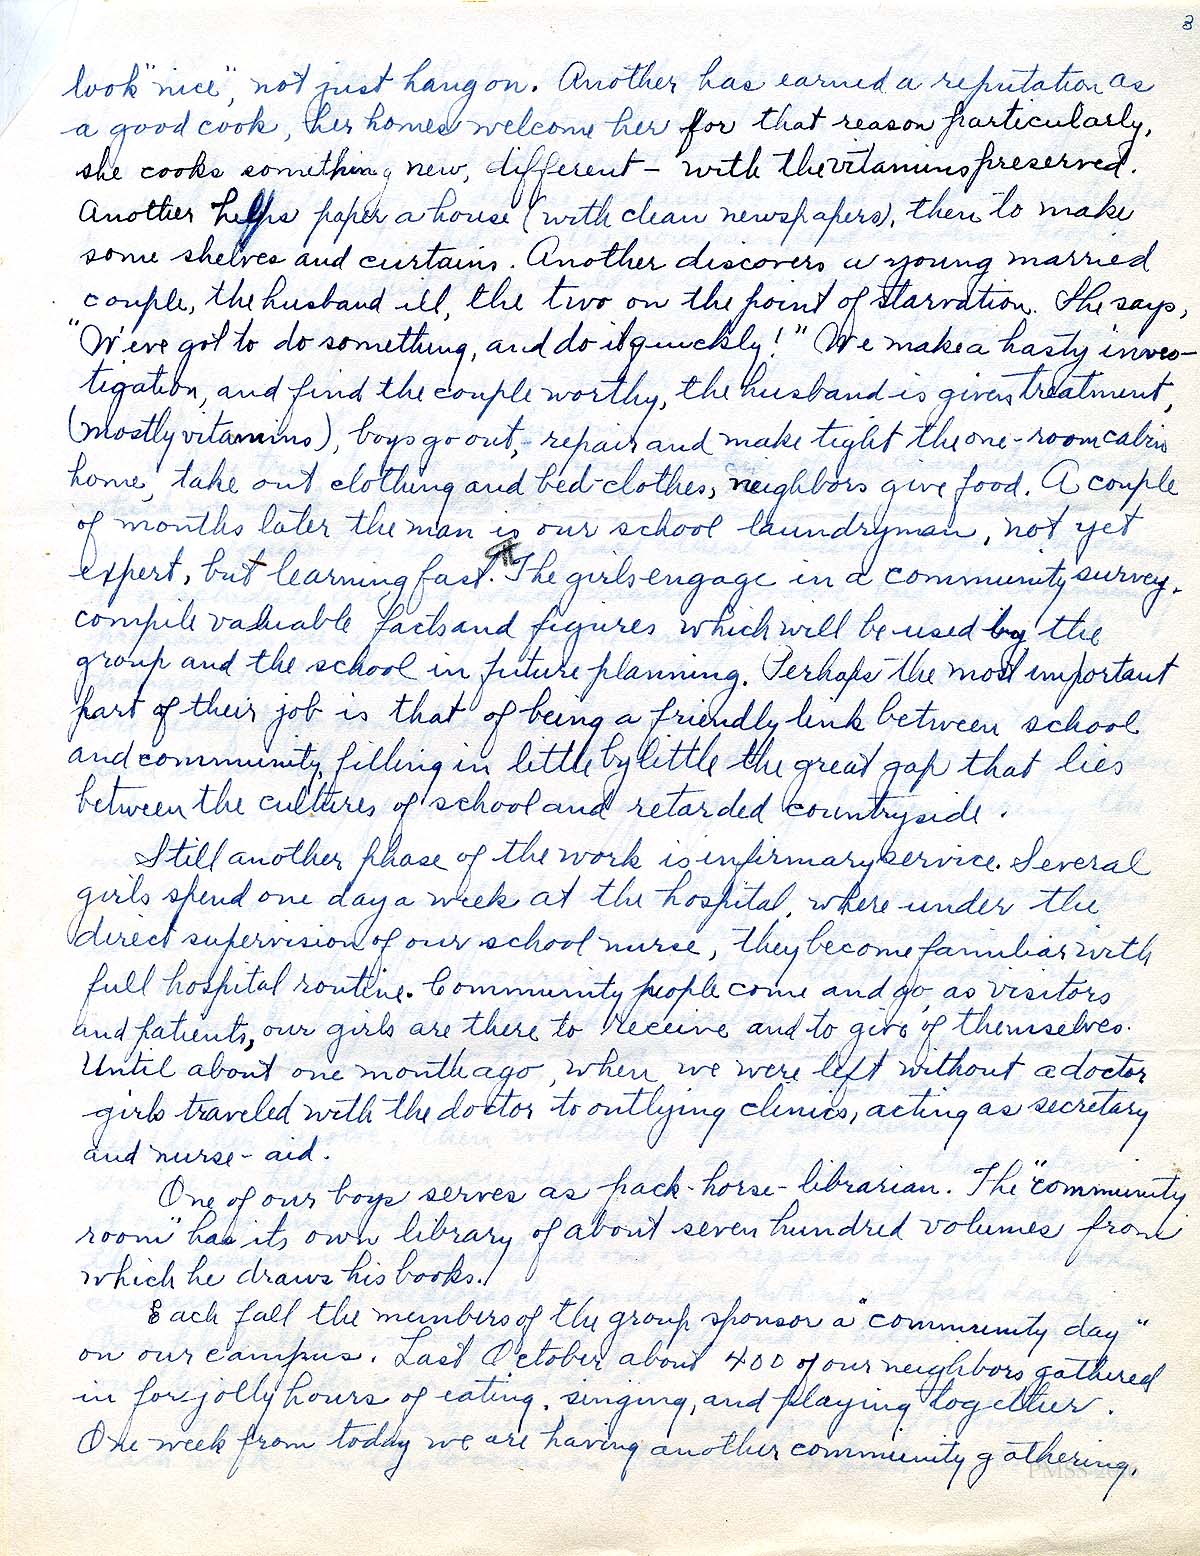 3
look "nice", not just hang on. Another has earned a reputation as
a good cook, her homes welcome her for that reason particularly,
she cooks something new, different – with the vitamins preserved.
Another helps paper a house (with clean newspapers), then to make
some shelves and curtains. Another discovers a young married
couple, the husband ill, the two on the point of starvation. She says,
"We've got to do something, and do it quickly!" We make a hasty inves-
tigation, and find the couple worthy, the husband is given treatment,
(mostly vitamins), boys go out, - repair and make tight the one-room cabin
home, take out clothing and bed-clothes, neighbors give food. A couple
of months later the man is our school laundryman, not yet
expert, but learning fast. ¶ The girls engage in a community survey,
compile valuable facts and figures which will be used by the
group and the school in future planning. Perhaps the most important
part of their job is that of being a friendly link between school
and community, filling in little by little the great gap that lies
between the cultures of school and retarded countryside.
Still another phase of the work is infirmary service. Several
girls spend one day a week at the hospital, where under the
direct supervision of our school nurse, they become familiar with
full hospital routine. Community people come and go, as visitors
and patients, our girls are there to receive and to give of themselves.
Until about one month ago, when we were left without a doctor
girls traveled with the doctor to outlying clinics, acting as secretary
and nurse-aid.
One of our boys serves as pack-horse-librarian. The "community
room" has its own library of about seven hundred volumes from
which he draws his books.
Each fall the members of the group sponsor a "community day"
on our campus. Last October about 400 of our neighbors gathered
in for jolly hours of eating, singing, and playing together.
One week from today we are having another community gathering.